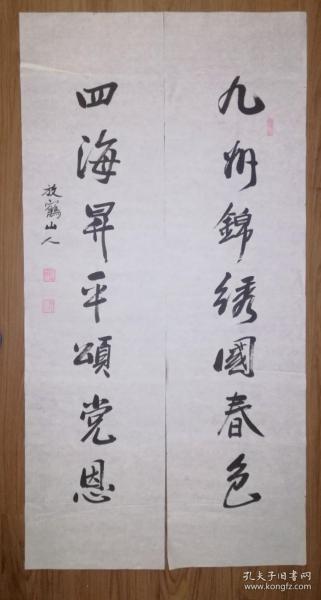 九州錦绣國春色
四海昇平頌党恩
放鶴山人
孔夫子旧书网